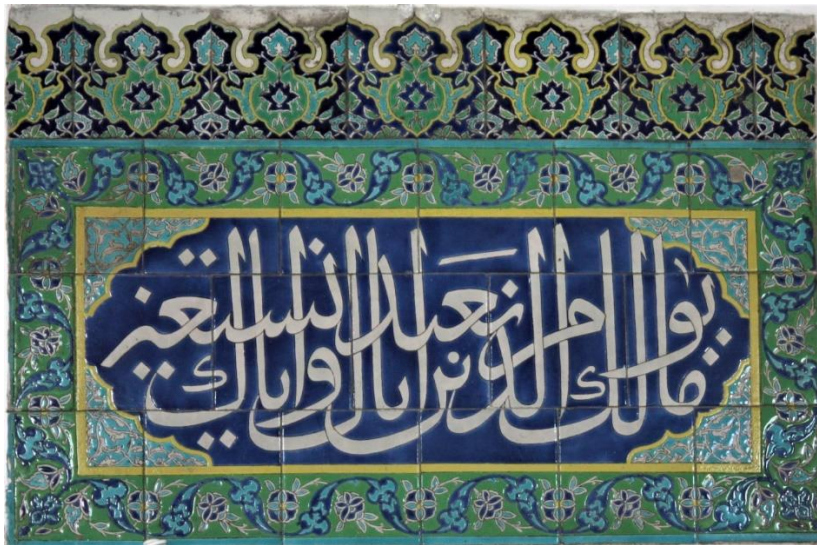 مالك يوم الدين اياك نعبد واياك نستعين